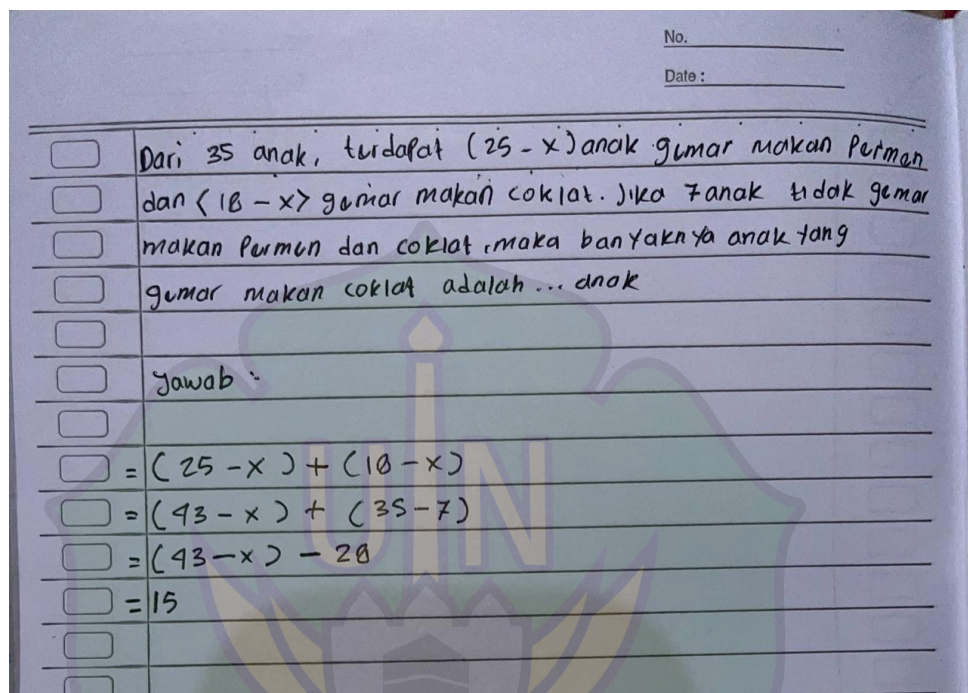 No.
Date :
Dari 35 anak, terdapat (25 - x) anak gemar makan Permen
dan (18 - x) gemar makan coklat. Jika 7 anak tidak gemar
makan Permen dan coklat, maka banyaknya anak yang
gemar makan coklat adalah ... anak
Jawab :
= (25 - x) + (18 - x)
= (43 - x) + (35 - 7)
= (43 - x) - 28
= 15
UIN